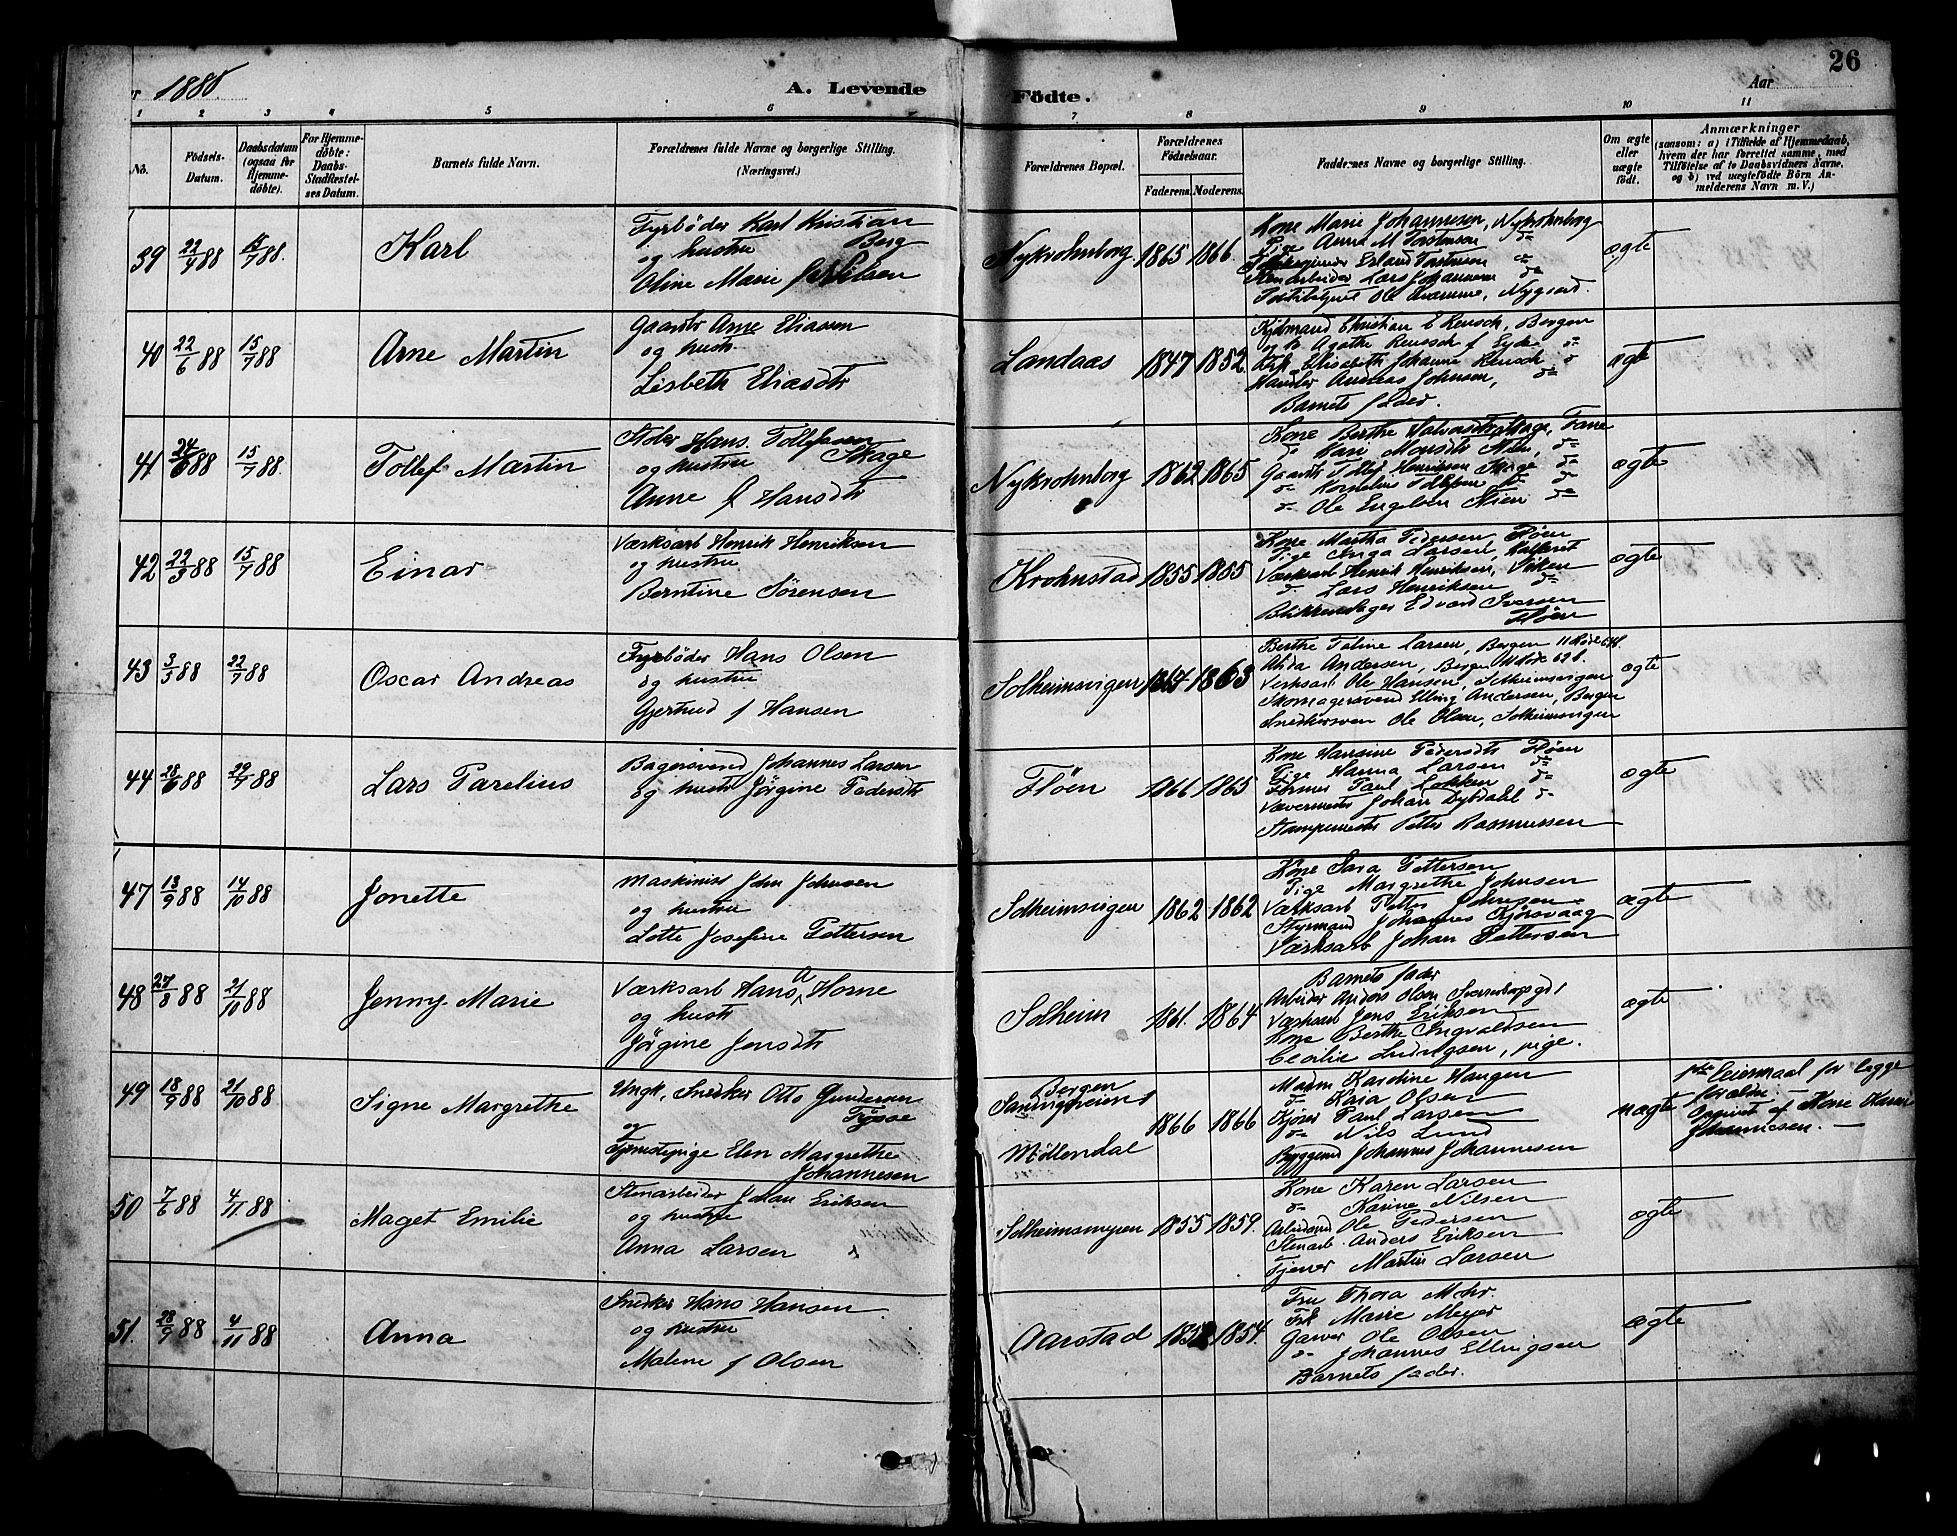 1888
A. Levende
Födte.
Aar
26
1 2 3 4 5 6 7 8 9 10 11
No.
Födsels-Datum.
Daabsdatum (ogsaa for Hjemme-döbte).
For Hjemme-döbte: Daabs-Stadfæstel-ses Datum.
Barnets fulde Navn.
Forældrenes fulde Navne og borgerlige Stilling. (Næringsvei.)
Forældrenes Bopæl.
Forældrenes Födselsaar.
Faderens. Moderens.
Faddernes Navne og borgerlige Stilling.
Om ægte eller uægte födt.
Anmærkninger (saasom: a) i Tilfælde af Hjemmedaab, hvem der har forrettet samme, med Tilföielse af to Daabsvidners Navne, og b) ved uægtefödte Börn An-melderens Navn m. V.)
39 22/4 88 15/7 88. Karl
Fyrböder Karl Kristian Berg
og hustru
Oline Marie
Nykrohnborg 1865 1866.
Kone Marie Johannesen, Nykrohnborg
Pige Anna M Torstensen do
Erland Torstensen do
Stenarbeider Lars Johannesen do
Ole Kvamme, Nygaard.
ægte
40 22/6 88 15/7 88 Arne Martin
Gaardbr Arne Eliasen
og hustr.
Lisbeth Eliasdtr
Landaas 1847 1852
Kjöbmand Christian E Reusch, Bergen
Agathe Reusch f Eyde do
Frk Elisabeth Johanne Reusch do
Handler Andreas Johnsen, do
Barnets fader.
ægte
41 24/6 88 15/7 88. Tollef Martin
Hans Tollefsen Skage
og hustru
Anne f Hansdtr
Nykrohnborg 1862 1865
Kone Berthe Skage, Fane
do Kari Monsdtr do
Gaardb Tollef Henriksen Skage do
do Tollefsen do
do Ole Engelsen do
ægte
42 22/3 88 15/7 88 Einar
Værksarb Henrik Henriksen
og hustru
Berntine Sörensen
Krohnstad 1855 1855
Kone Martha Pedersen, Flöen
Pige Inga Larsen,
Værksarb Henrik Henriksen, Viken
do Lars Henriksen do
Blikkenslager Edvard Iversen
Flöen
ægte
43 3/5 88 22/7 88 Oscar Andreas
Fyrböder Hans Olsen
og hustru
Gjertrud f Hansen
Solheimsvigen 1864 1863
Berthe Larsen, Bergen
Alida Andersen, Bergen
Verksarb Ole Hansen, Solheimsvigen
Skomagersvend Elling Andersen, Bergen
Snedkersven Ole Olsen, Solheimsvigen
ægte
44 28/6 88 29/7 88 Lars Parelius
Bagersvend Johannes Larsen
og hustr Jörgine Pedersdtr
Flöen 1866 1865
Kone Hansine Pedersdtr Flöen
Pige Hanna Larsen do
Paul Lökken do
Vævermester Johan Dybdahl do
Stampemester Petter Rasmussen
ægte
47 13/9 88 14/10 88 Jonette
Maskinist John Johnsen
og hustru
Lotte Josefine Pettersen
Solheimsvigen 1862 1862
Kone Sara Pettersen
Pige Margrethe Johnsen
Værksarb Petter Johnsen
Styrmand Johannes Kjörsvaag
Værksarb Johan Pettersen
ægte
48 27/8 88 21/10 88 Jenny Marie
Værksarb Hans A Horne
og hustr
Jörgine Jensdtr
Solheim 1861. 1864
Barnets fader
Arbeider Anders Olsen
Værksarb Jens Eriksen
Kone Berthe Ingvaldsen
Cecilie Ludvigsen, pige.
ægte
49 18/9 88 21/10 88 Signe Margrethe
Ungk, Snedker Otto Gundersen
og
Tjenestepige Elen Margrethe
Johannesen
Bergen
Möllendal
1866 1866
Madm Karoline Haugen
do Kaia Olsen
Kjörer Paul Larsen
do Nils Lund
Johannes Johannesen
uægte
1ste Leiermaal for begge
forældre.
Opgivet af Kone Karen
Johannesen.
50 7/6 88 4/11 88 Maget Emilie
Stenarbeider Johan Eriksen
og hustru
Anna Larsen
Solheimsvigen 1855 1859.
Kone Karen Larsen
do Karine Nilsen
Arbeidsmd Ole Pedersen
Stenarb. Anders Eriksen
Tjener Martin Larsen
ægte
51. 28/9 88 4/11 88 Anna
Snedker Hans Hansen
og hustru
Malene f Olsen
Aarstad 1854.
Fru Thora Mohr
Frk Marie Meyer
Garver Ole Olsen
do Johannes Ellingsen
Barnets fader.
ægte